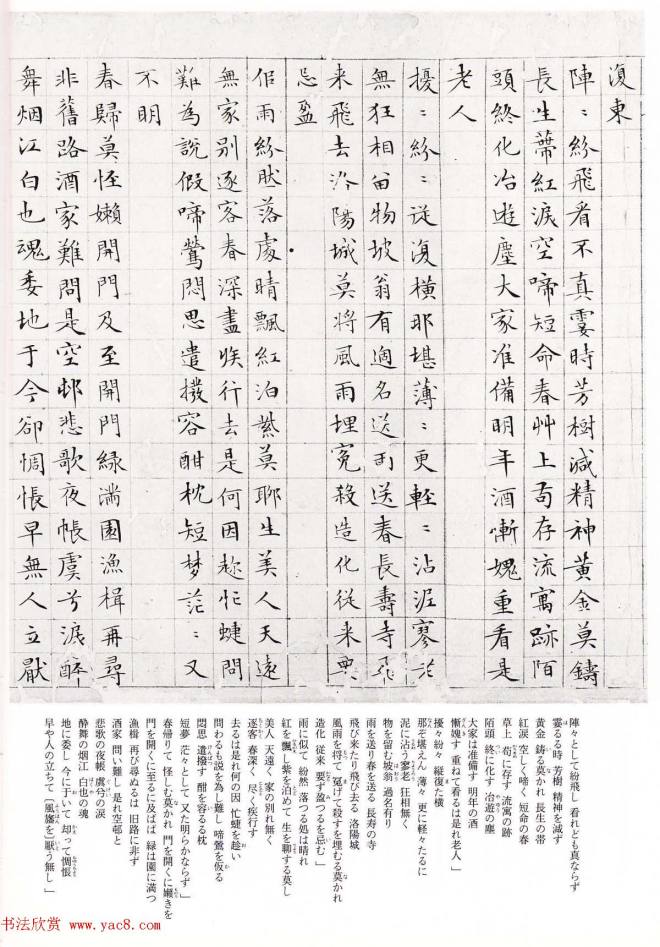 復東
陣〻紛飛看不真霎時芳樹減精神黃金莫鑄
長生蔕紅淚空啼短命春艸上苟存流寓跡陌
頭終化冶遊塵大家准備明年酒慚媿重看是
老人
擾〻紛〻從復橫那堪薄〻更輕〻沾泥寥老
無狂相留物坡翁有過名送雨送春長壽寺飛
来飛去洛陽城莫將風雨埋冤殺造化從来要
忌盈
佀雨紛肰落處晴飄紅泊紫莫聊生美人天遠
無家別逐客春深盡族行去是何因趂忙蜨問
難為說假啼鶯悶思遣撥容酣枕短梦茫〻又
不明
春歸莫恠嬾開門及至開門緑滿園漁楫再尋
非舊路酒家難問是空邨悲歌夜帳虞兮淚醉
舞烟江白也魂委地于今卻惆悵早無人立厭
陣々として紛飛し 看れども真ならず
霎るる時 芳樹 精神を減ず
黄金 鋳る莫かれ 長生の蔕
紅涙 空しく啼く 短命の春
草上 苟に存す 流寓の跡
陌頭 終に化す 冶遊の塵
大家は准備す 明年の酒
慚媿す 重ねて看るは是れ老人」
擾々紛々 縦復た横
那ぞ堪えん 薄々 更に軽々たるに
泥に沾う寥老 狂相無く
物を留むる坡翁 過名有り
雨を送り春を送る 長寿の寺
飛び来たり飛び去る 洛陽城
風雨を将て 冤げて殺すを埋むる莫かれ
造化 従来 要ず盈つるを忌む」
雨に似て 紛然 落つる処は晴れ
紅を飄し紫を泊めて 生を聊する莫し
美人 天遠く 家の別れ無く
逐客 春深く 尽く族行す
去るは是れ何の因 忙蜨を趁い
問わるも説を為し難し 啼鶯を仮る
悶思 遣撥す 酣を容るる枕
短夢 茫々として 又た明らかならず」
春帰りて 怪しむ莫かれ 門を開くに嬾きを
門を開くに至るに及ばば 緑は園に満つ
漁楫 再び尋ぬるは 旧路に非ず
酒家 問い難し 是れ空邨と
悲歌の夜帳 虞兮の涙
酔舞の烟江 白也の魂
地に委し 今に于いて 却って惆悵
早や人の立ちて〔風旛を〕厭う無し」
书法欣赏 www.yac8.com